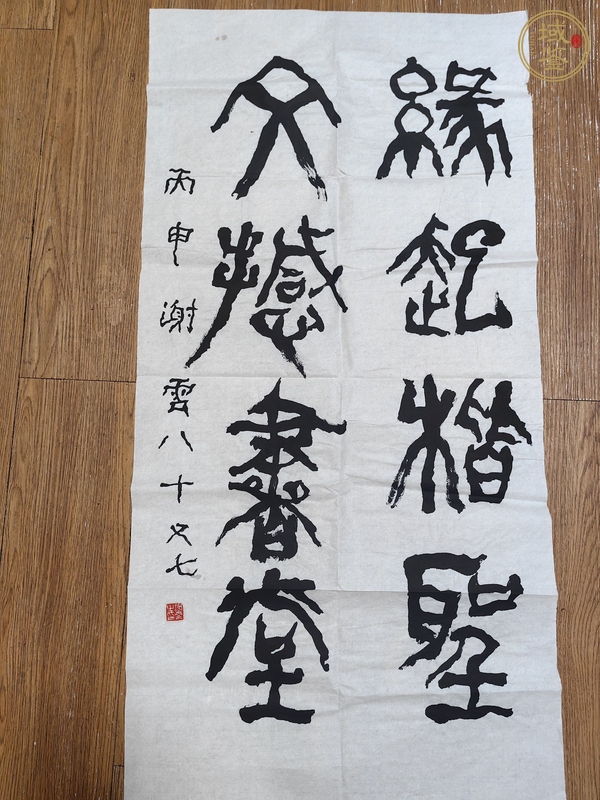 緣起楷聖
文撼書堂
丙申謝雲八十又七
域鉴